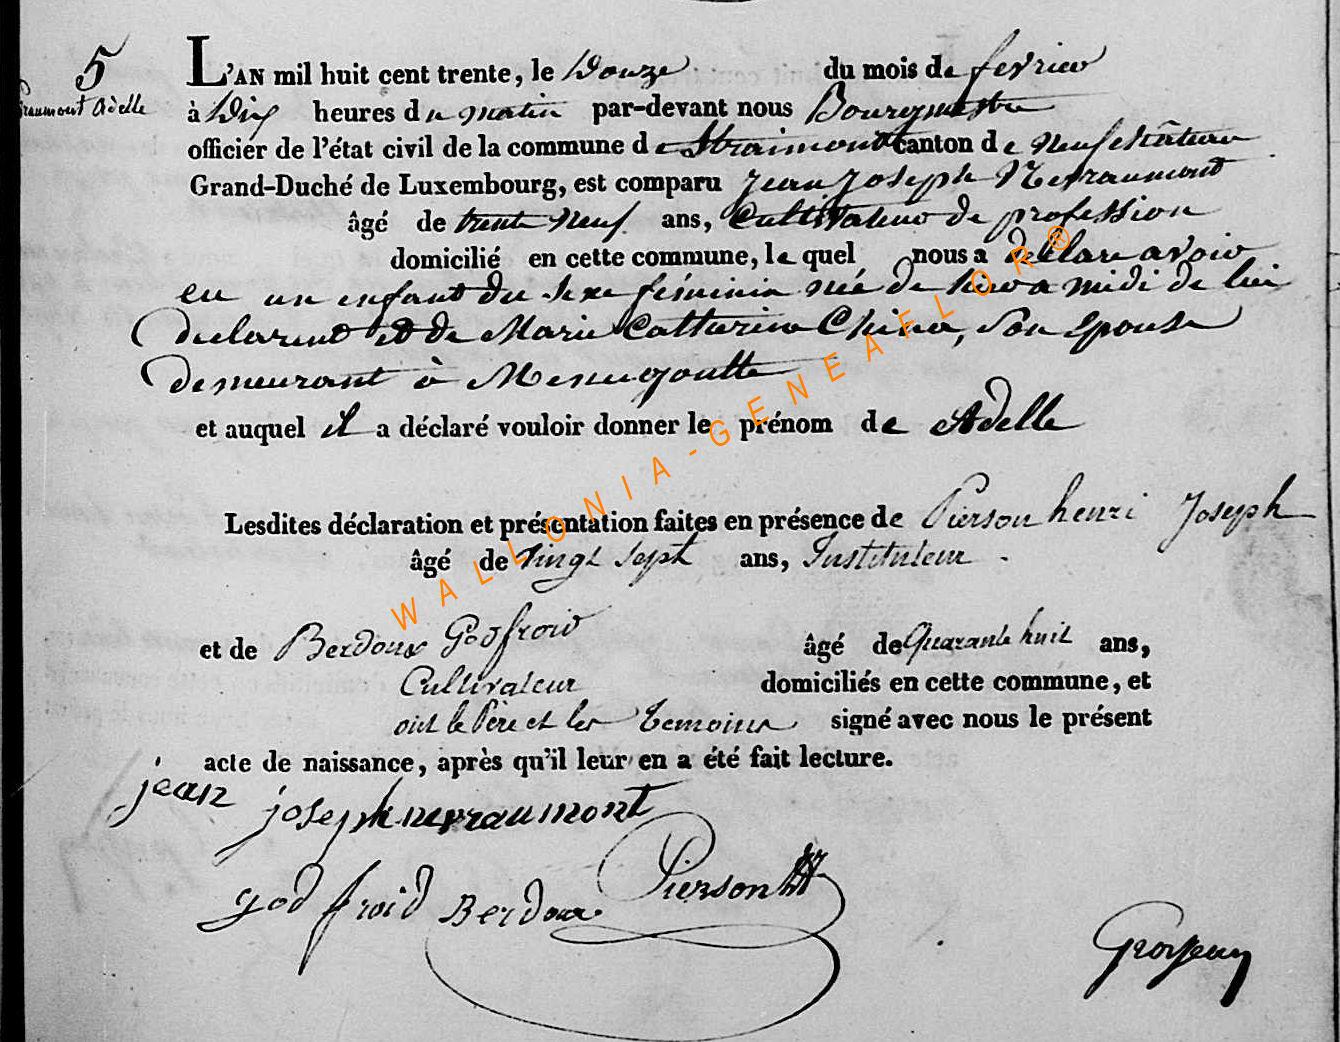 5
L'AN mil huit cent trente, le Douze du mois de fevrier
Adelle
à Dix heures du matin par-devant nous Bourgmestre
officier de l'état civil de la commune de Straimont canton de Neufchâteau
Grand-Duché de Luxembourg, est comparu Jean Joseph Nevraumont
âgé de trente neuf ans, Cultivateur de profession
domicilié en cette commune, le quel nous a déclaré avoir
eu un enfant du sexe féminin né de hier a midi de lui
declarent et de Marie Catherine China, Son Epouse
demeurant à Menugoutte
et auquel il a déclaré vouloir donner le prénom de Adelle
Lesdites déclaration et présentation faites en présence de Pierson henri Joseph
âgé de vingt sept ans, Instituteur
et de Berdoux Godfroid âgé de Quarante huit ans,
Cultivateur domiciliés en cette commune, et
ont le Père et les temoins signé avec nous le présent
acte de naissance, après qu'il leur en a été fait lecture.
jean joseph nevraumont
godfroid Berdoux Pierson
WALLONIA-GENEAFLOR®